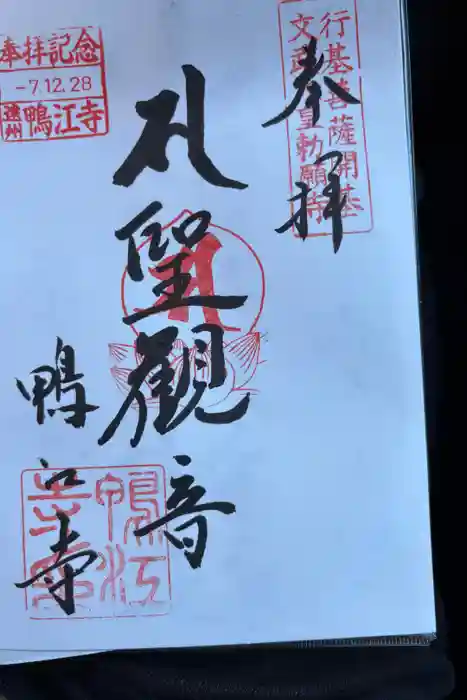 行基菩薩開基
文武天皇勅願寺
奉拝
聖觀音
奉拝記念
-7.12.28
遠州 鴨江寺
鴨江寺